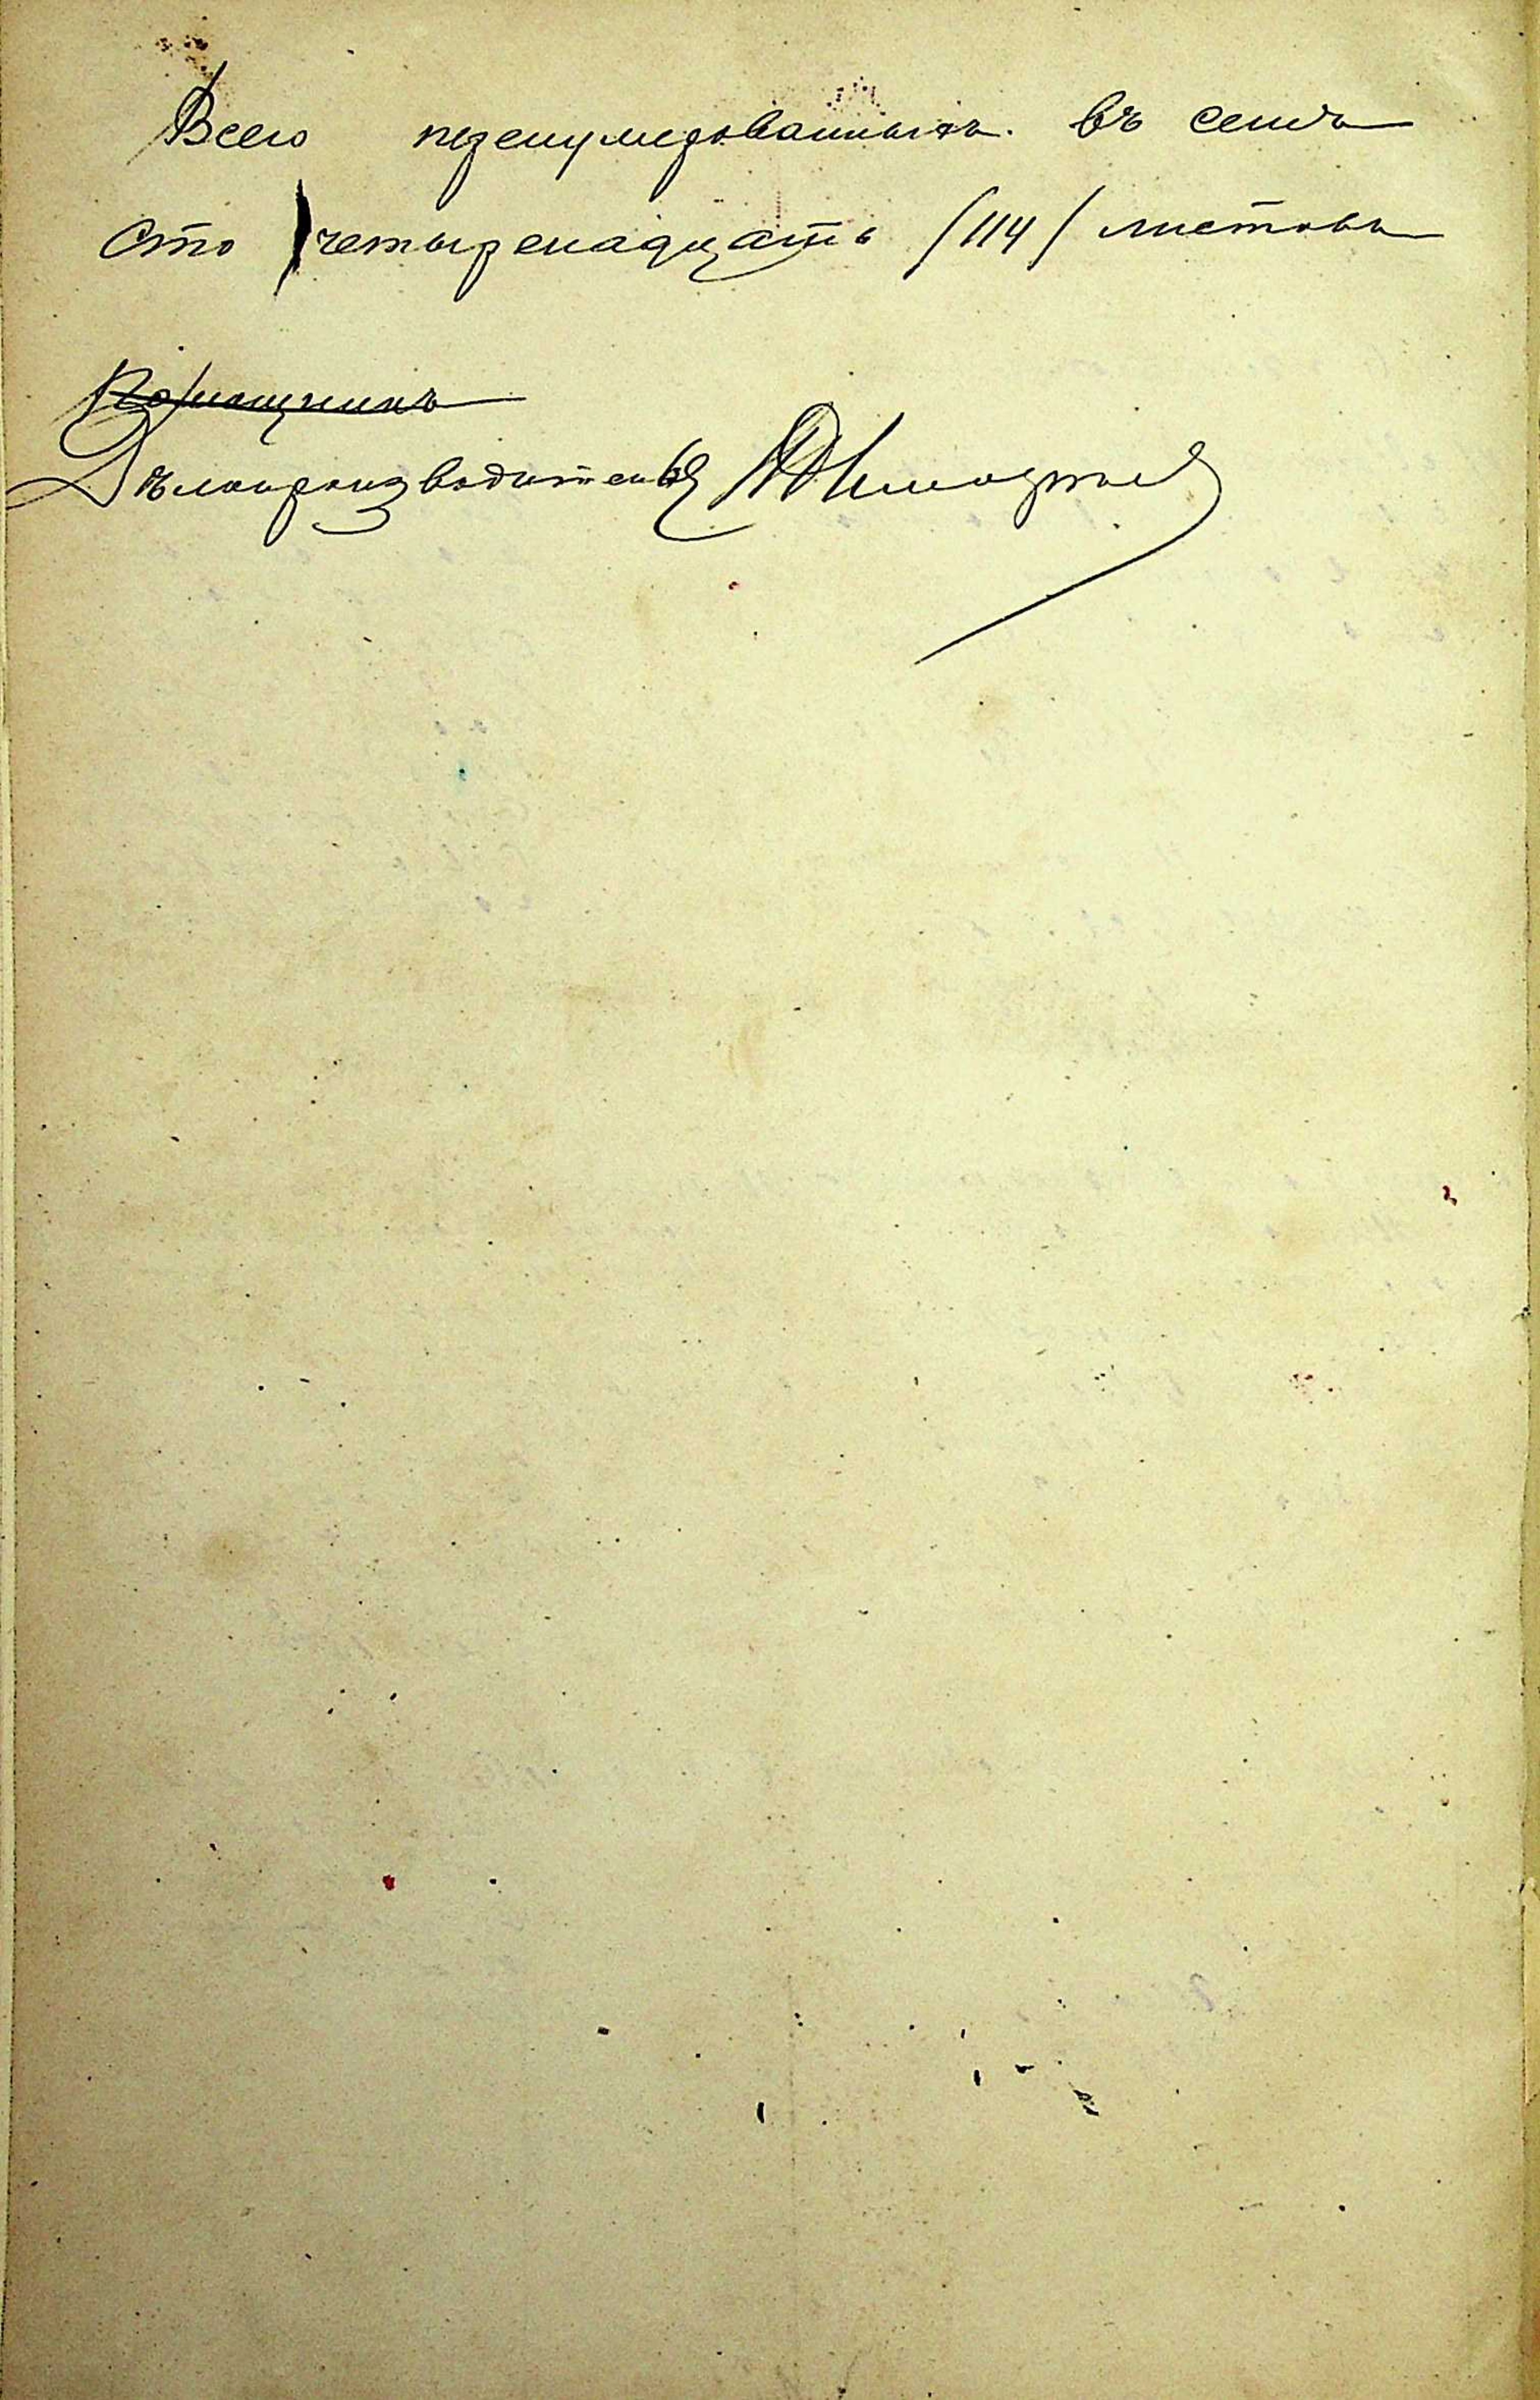 Всего перенумерованныхъ въ семъ
сто четыренадцать /114/ листовъ
Помощникъ
Дѣлопроизводитель